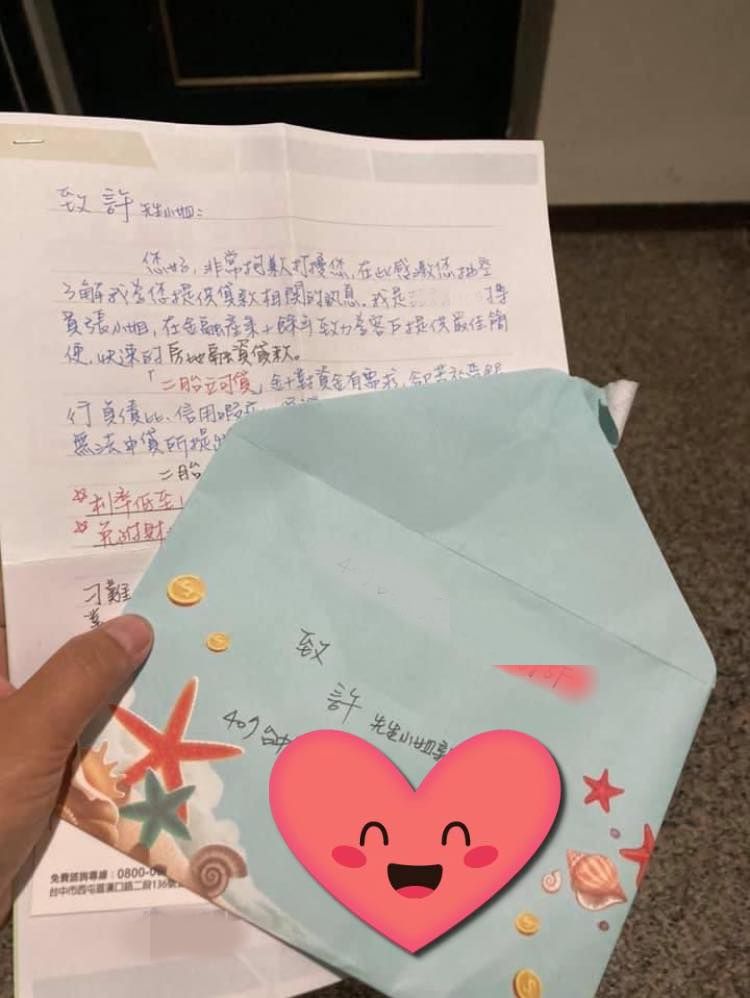 致 許 先生小姐：
您好，非常抱歉打擾您，在此感激您抽空
了解我為您提供貸款相關的訊息。我是 專
員張小姐，在金融產業十餘年致力為客戶提供最佳簡
便、快速的房地融資貸款。
「二胎立可貸」針對資金有需求，卻苦於
行負債比、信用瑕疵
無法申貸所提出
二胎
*利率低至
*免附財
刁難
致
許 先生小姐
407 台中
免費諮詢專線：0800-0
台中市西屯區漢口路二段136號